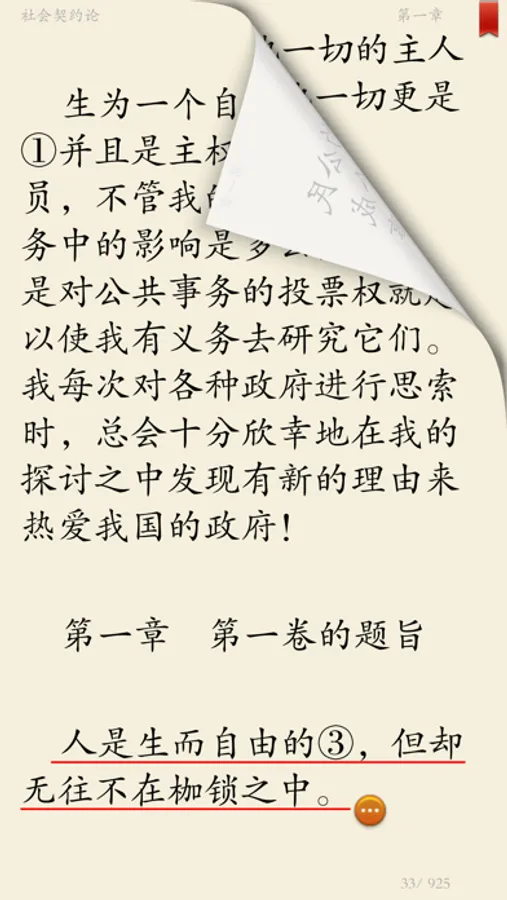 社会契约论 第一章
一切的主人
生为一个自 一切更是
①并且是主权
员，不管我的
务中的影响是多
是对公共事务的投票权就足
以使我有义务去研究它们。
我每次对各种政府进行思索
时，总会十分欣幸地在我的
探讨之中发现有新的理由来
热爱我国的政府！
第一章 第一卷的题旨
人是生而自由的③，但却
无往不在枷锁之中。
33/ 925